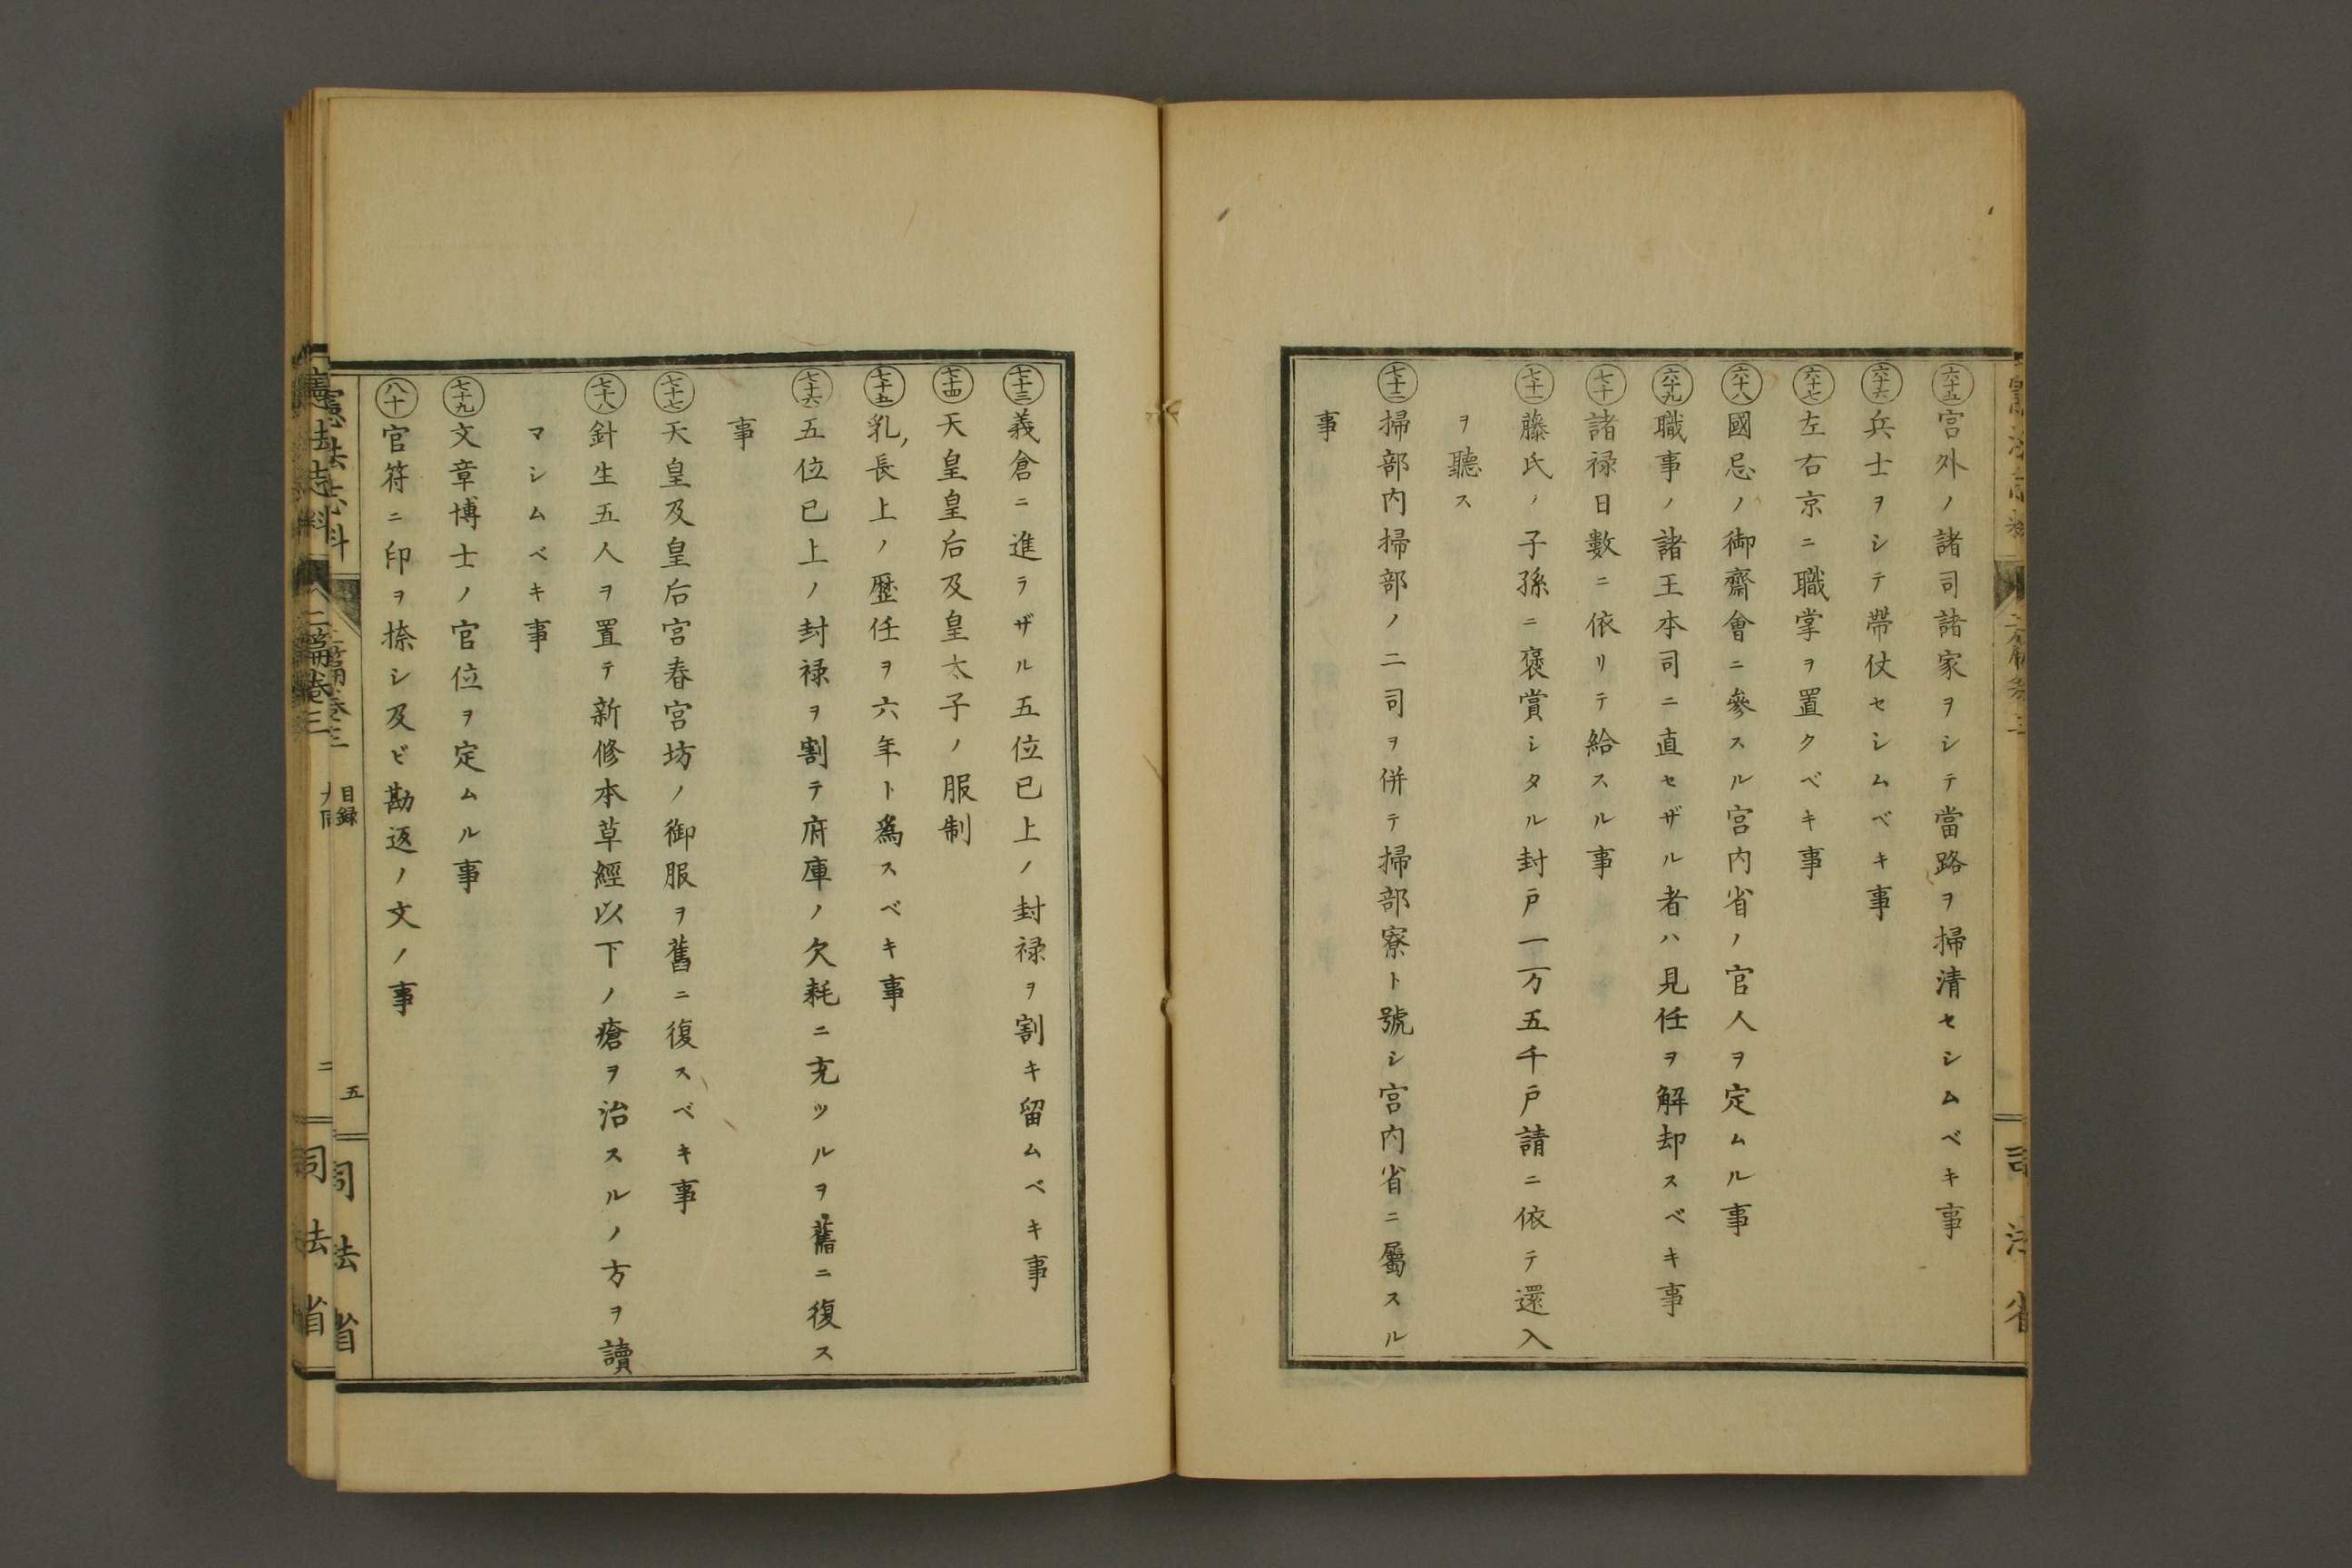 六十五 宮外ノ諸司諸家ヲシテ當路ヲ掃清セシムベキ事
六十六 兵士ヲシテ帶仗セシムベキ事
六十七 左右京ニ職掌ヲ置クベキ事
六十八 國忌ノ御齋會ニ參スル宮内省ノ官人ヲ定ムル事
六十九 職事ノ諸王本司ニ直セザル者ハ見任ヲ解却スベキ事
七十 諸禄日數ニ依リテ給スル事
七十一 藤氏ノ子孫ニ褒賞シタル封戸一万五千戸請ニ依テ還入
ヲ聽ス
七十二 掃部内掃部ノ二司ヲ併テ掃部寮ト號シ宮内省ニ屬スル
事
七十三 義倉ニ進ラザル五位已上ノ封禄ヲ割キ留ムベキ事
七十四 天皇皇后及皇太子ノ服制
七十五 乳長上ノ歷任ヲ六年ト爲スベキ事
七十六 五位已上ノ封禄ヲ割テ府庫ノ欠耗ニ充ツルヲ舊ニ復ス
事
七十七 天皇及皇后宮春宮坊ノ御服ヲ舊ニ復スベキ事
七十八 針生五人ヲ置テ新修本草經以下ノ瘡ヲ治スルノ方ヲ讀
マシムベキ事
七十九 文章博士ノ官位ヲ定ムル事
八十 官符ニ印ヲ捺シ及ビ勘返ノ文ノ事
憲法志料
二篇卷三
目録
五
司法省
憲法志料
二篇卷三
二
司法省